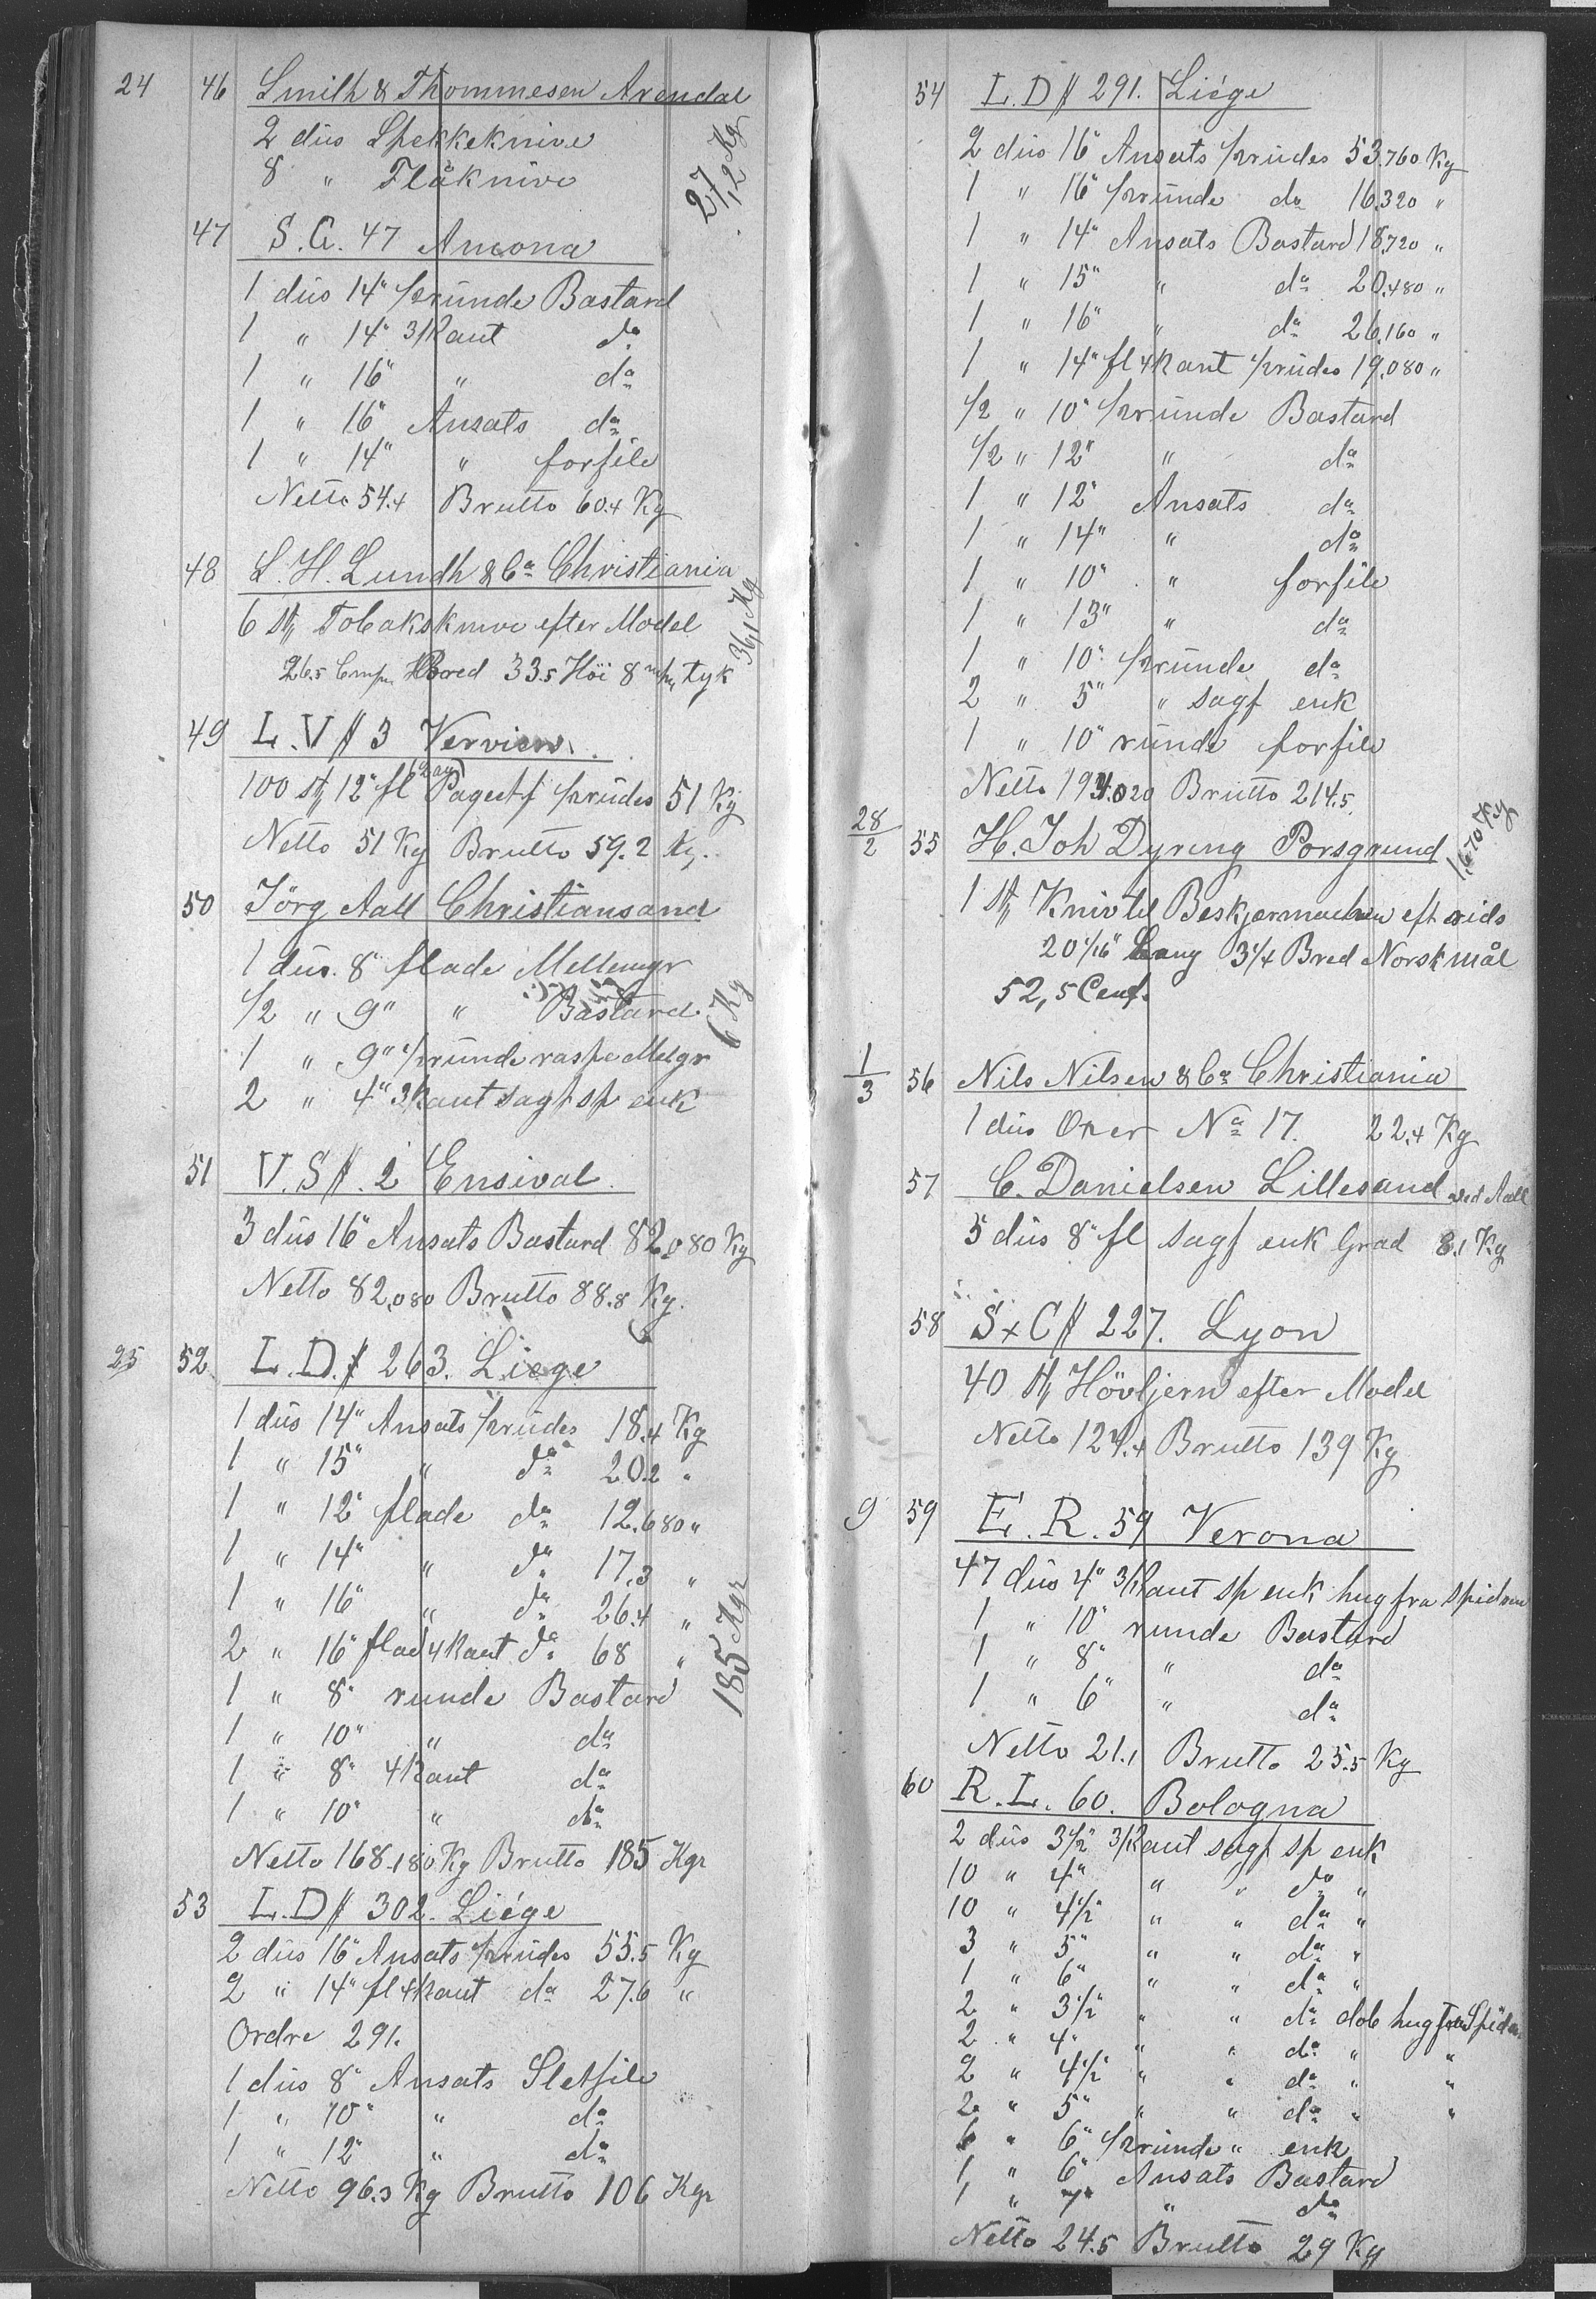 24 46 Smith & Thommesen Arendal
2 düs Spekkeknive
8 " Flåknive
27,2 Kg
47 S.G. 47 Ancona
1 düs 14" 1/2 ründe Bastard
1 " 14" 3/Kant do
1 " 16" " do
1 " 16" Ansats do
1 " 14" " forfile
Netto 54.4 Brutto 60.4 Kg
48 L. H. Lundh & Co Christiania
6 St, Tobaksknive efter Model
26.5 Bred 33.5 Höi 8 m/m tyk
36,1 Kg
49 L.V # 3 Verviers
100 St, 12" fl 51 Kg
Netto 51 Kg Brutto 59.2 Kg.
50 Jörg Aall Christiansand
1 düs. 8" flade Mellemgr
1/2 " 9" " Bastard.
1 " 9" 1/2 ründe raspe Melgr
2 " 4" 3/Kant sagf sp enk
6 Kg
51 V.S #. 2 Ensival.
3 düs 16" Ansats Bastard 82,080 Kg
Netto 82,080 Brutto 88.8 Kg.
25 52 L.D. # 263. Liege
1 düs 14" Ansats 1/2 rüdes 18.4 Kg
1 " 15" " do 20.2 "
1 " 12" flade do 12.680 "
1 " 14" " do 17.3 "
1 " 16" " do 26.4 "
2 " 16" flad 4 Kant do 68 "
1 " 8" runde Bastard
1 " 10" " do
1 " 8" 4 Kant do
1 " 10" " do
185 Kgr
Netto 168.180 Kg Brutto 185 Kgr
53 L.D # 302. Liége
2 düs 16" Ansats 1/2 rüdes 55.5 Kg
2 " 14" fl 4 Kant do 27.6 "
Ordre 291.
1 düs 8" Ansats Sletfile
1 " 10" " do
1 " 12" " do
Netto 96.3 Kg Brutto 106 Kgr
54 L.D # 291. Liége
2 düs 16" Ansats 1/2 rüdes 53.760 Kg
1 " 16" 1/2 ründe do 16.320 "
1 " 14" Ansats Bastard 18,720 "
1 " 15" " do 20.480 "
1 " 16" " do 26.160 "
1 " 14" fl 4 Kant 1/2 rüdes 19.080 "
1/2 " 10" 1/2 ründe Bastard
1/2 " 12" " do
1 " 12" Ansats do
1 " 14" " do
1 " 10" " forfile
1 " 13" " do
1 " 10" 1/2 ründe do
2 " 5" " sagf enk
1 " 10" ründe forfile
Netto 194.020 Brutto 214.5
28/2 55 H. Joh Dyring Porsgrund
1,670 Kg
1 St, Kniv til eft rids
20 1/16" Lang 3 1/4 Bred Norsk mål
52,5 Cent.
1/3 56 Nils Nilsen & Co Christiania
1 düs Oxer No 17. 22.4 Kg
57 C. Danielsen Lillesand ved Aall
5 düs 8" fl sagf enk Grad 8.1 Kg
58 S x C # 227. Lyon
40 St, Hövljern efter Model
Netto 124.4 Brutto 139 Kg
9 59 E. R. 59 Verona
47 düs 4" 3/Kant sp enk hug fra spidsen
1 " 10" runde Bastard
1 " 8" " do
1 " 6" " do
Netto 21.1 Brutto 25.5 Kg
60 R. L. 60. Bologna
2 düs 3 1/2" 3/Kant sagf sp enk
10 " 4" " " do "
10 " 4 1/2" " " do "
3 " 5" " " do "
1 " 6" " " do "
2 " 3 1/2" " " do dob hug fra Spidsen
2 " 4" " " do " "
2 " 4 1/2" " " do " "
2 " 5" " " do " "
6 " 6" 1/2 ründe " enk
1 " 6" Ansats Bastard
1 " 7" " do
Netto 24.5 Brutto 29 Kg